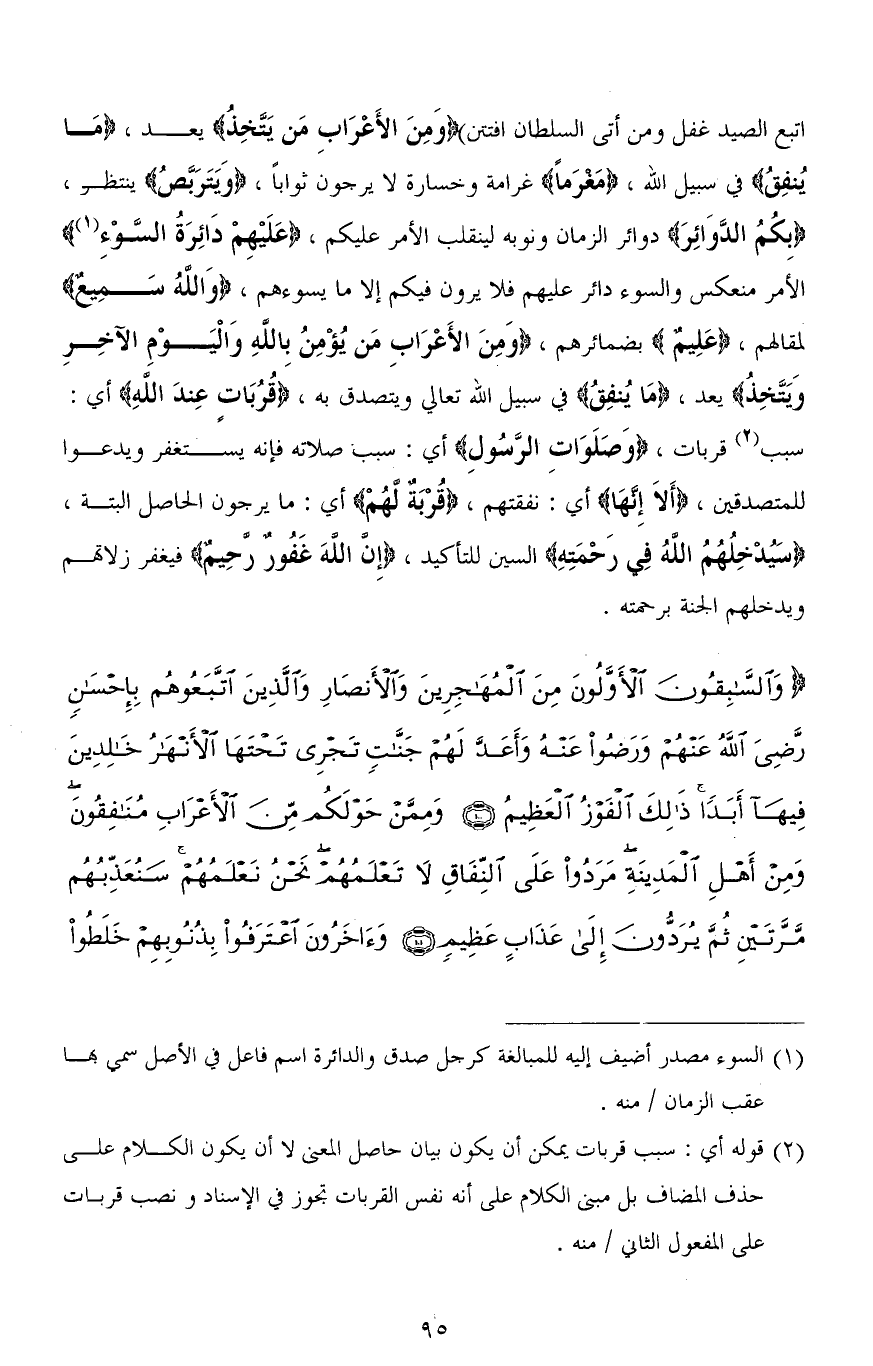 اتبع الصيد غفل ومن أتى السلطان افتتن)﴿وَمِنَ الأَعْرَابِ مَن يَتَّخِذُ﴾ يعد ، ﴿مَا
يُنفِقُ﴾ في سبيل الله ، ﴿مَغْرَماً﴾ غرامة وخسارة لا يرجون ثواباً ، ﴿وَيَتَرَبَّصُ﴾ ينتظر ،
﴿بِكُمُ الدَّوَائِرَ﴾ دوائر الزمان ونوبه لينقلب الأمر عليكم ، ﴿عَلَيْهِمْ دَائِرَةُ السَّوْءِ(١)﴾
الأمر منعكس والسوء دائر عليهم فلا يرون فيكم إلا ما يسوءهم ، ﴿وَاللَّهُ سَمِيعٌ﴾
لمقالهم ، ﴿عَلِيمٌ ﴾ بضمائرهم ، ﴿وَمِنَ الأَعْرَابِ مَن يُؤْمِنُ بِاللَّهِ وَالْيَوْمِ الآخِرِ
وَيَتَّخِذُ﴾ يعد ، ﴿مَا يُنفِقُ﴾ في سبيل الله تعالي ويتصدق به ، ﴿قُرُبَاتٍ عِندَ اللَّهِ﴾ أي :
سبب(٢) قربات ، ﴿وَصَلَوَاتِ الرَّسُولِ﴾ أي : سبب صلاته فإنه يستغفر ويدعوا
للمتصدقين ، ﴿أَلاَ إِنَّهَا﴾ أي : نفقتهم ، ﴿قُرْبَةٌ لَّهُمْ﴾ أي : ما يرجون الحاصل البتة ،
﴿سَيُدْخِلُهُمُ اللَّهُ فِي رَحْمَتِهِ﴾ السين للتأكيد ، ﴿إِنَّ اللَّهَ غَفُورٌ رَّحِيمٌ﴾ فيغفر زلاتهم
ويدخلهم الجنة برحمته .
﴿ وَٱلسَّٰبِقُونَ ٱلْأَوَّلُونَ مِنَ ٱلْمُهَٰجِرِينَ وَٱلْأَنصَارِ وَٱلَّذِينَ ٱتَّبَعُوهُم بِإِحْسَٰنٍ
رَّضِىَ ٱللَّهُ عَنْهُمْ وَرَضُوا۟ عَنْهُ وَأَعَدَّ لَهُمْ جَنَّٰتٍ تَجْرِى تَحْتَهَا ٱلْأَنْهَٰرُ خَٰلِدِينَ
فِيهَآ أَبَدًا ۚ ذَٰلِكَ ٱلْفَوْزُ ٱلْعَظِيمُ ۝١٠٠ وَمِمَّنْ حَوْلَكُم مِّنَ ٱلْأَعْرَابِ مُنَٰفِقُونَ ۖ
وَمِنْ أَهْلِ ٱلْمَدِينَةِ ۖ مَرَدُوا۟ عَلَى ٱلنِّفَاقِ لَا تَعْلَمُهُمْ ۖ نَحْنُ نَعْلَمُهُمْ ۚ سَنُعَذِّبُهُم
مَّرَّتَيْنِ ثُمَّ يُرَدُّونَ إِلَىٰ عَذَابٍ عَظِيمٍ ۝١٠١ وَءَاخَرُونَ ٱعْتَرَفُوا۟ بِذُنُوبِهِمْ خَلَطُوا۟
(١) السوء مصدر أضيف إليه للمبالغة كرجل صدق والدائرة اسم فاعل في الأصل سمي بها
عقب الزمان / منه .
(٢) قوله أي : سبب قربات يمكن أن يكون بيان حاصل المعنى لا أن يكون الكلام على
حذف المضاف بل مبنى الكلام على أنه نفس القربات تجوز في الإسناد و نصب قربات
على المفعول الثاني / منه .
٩٥